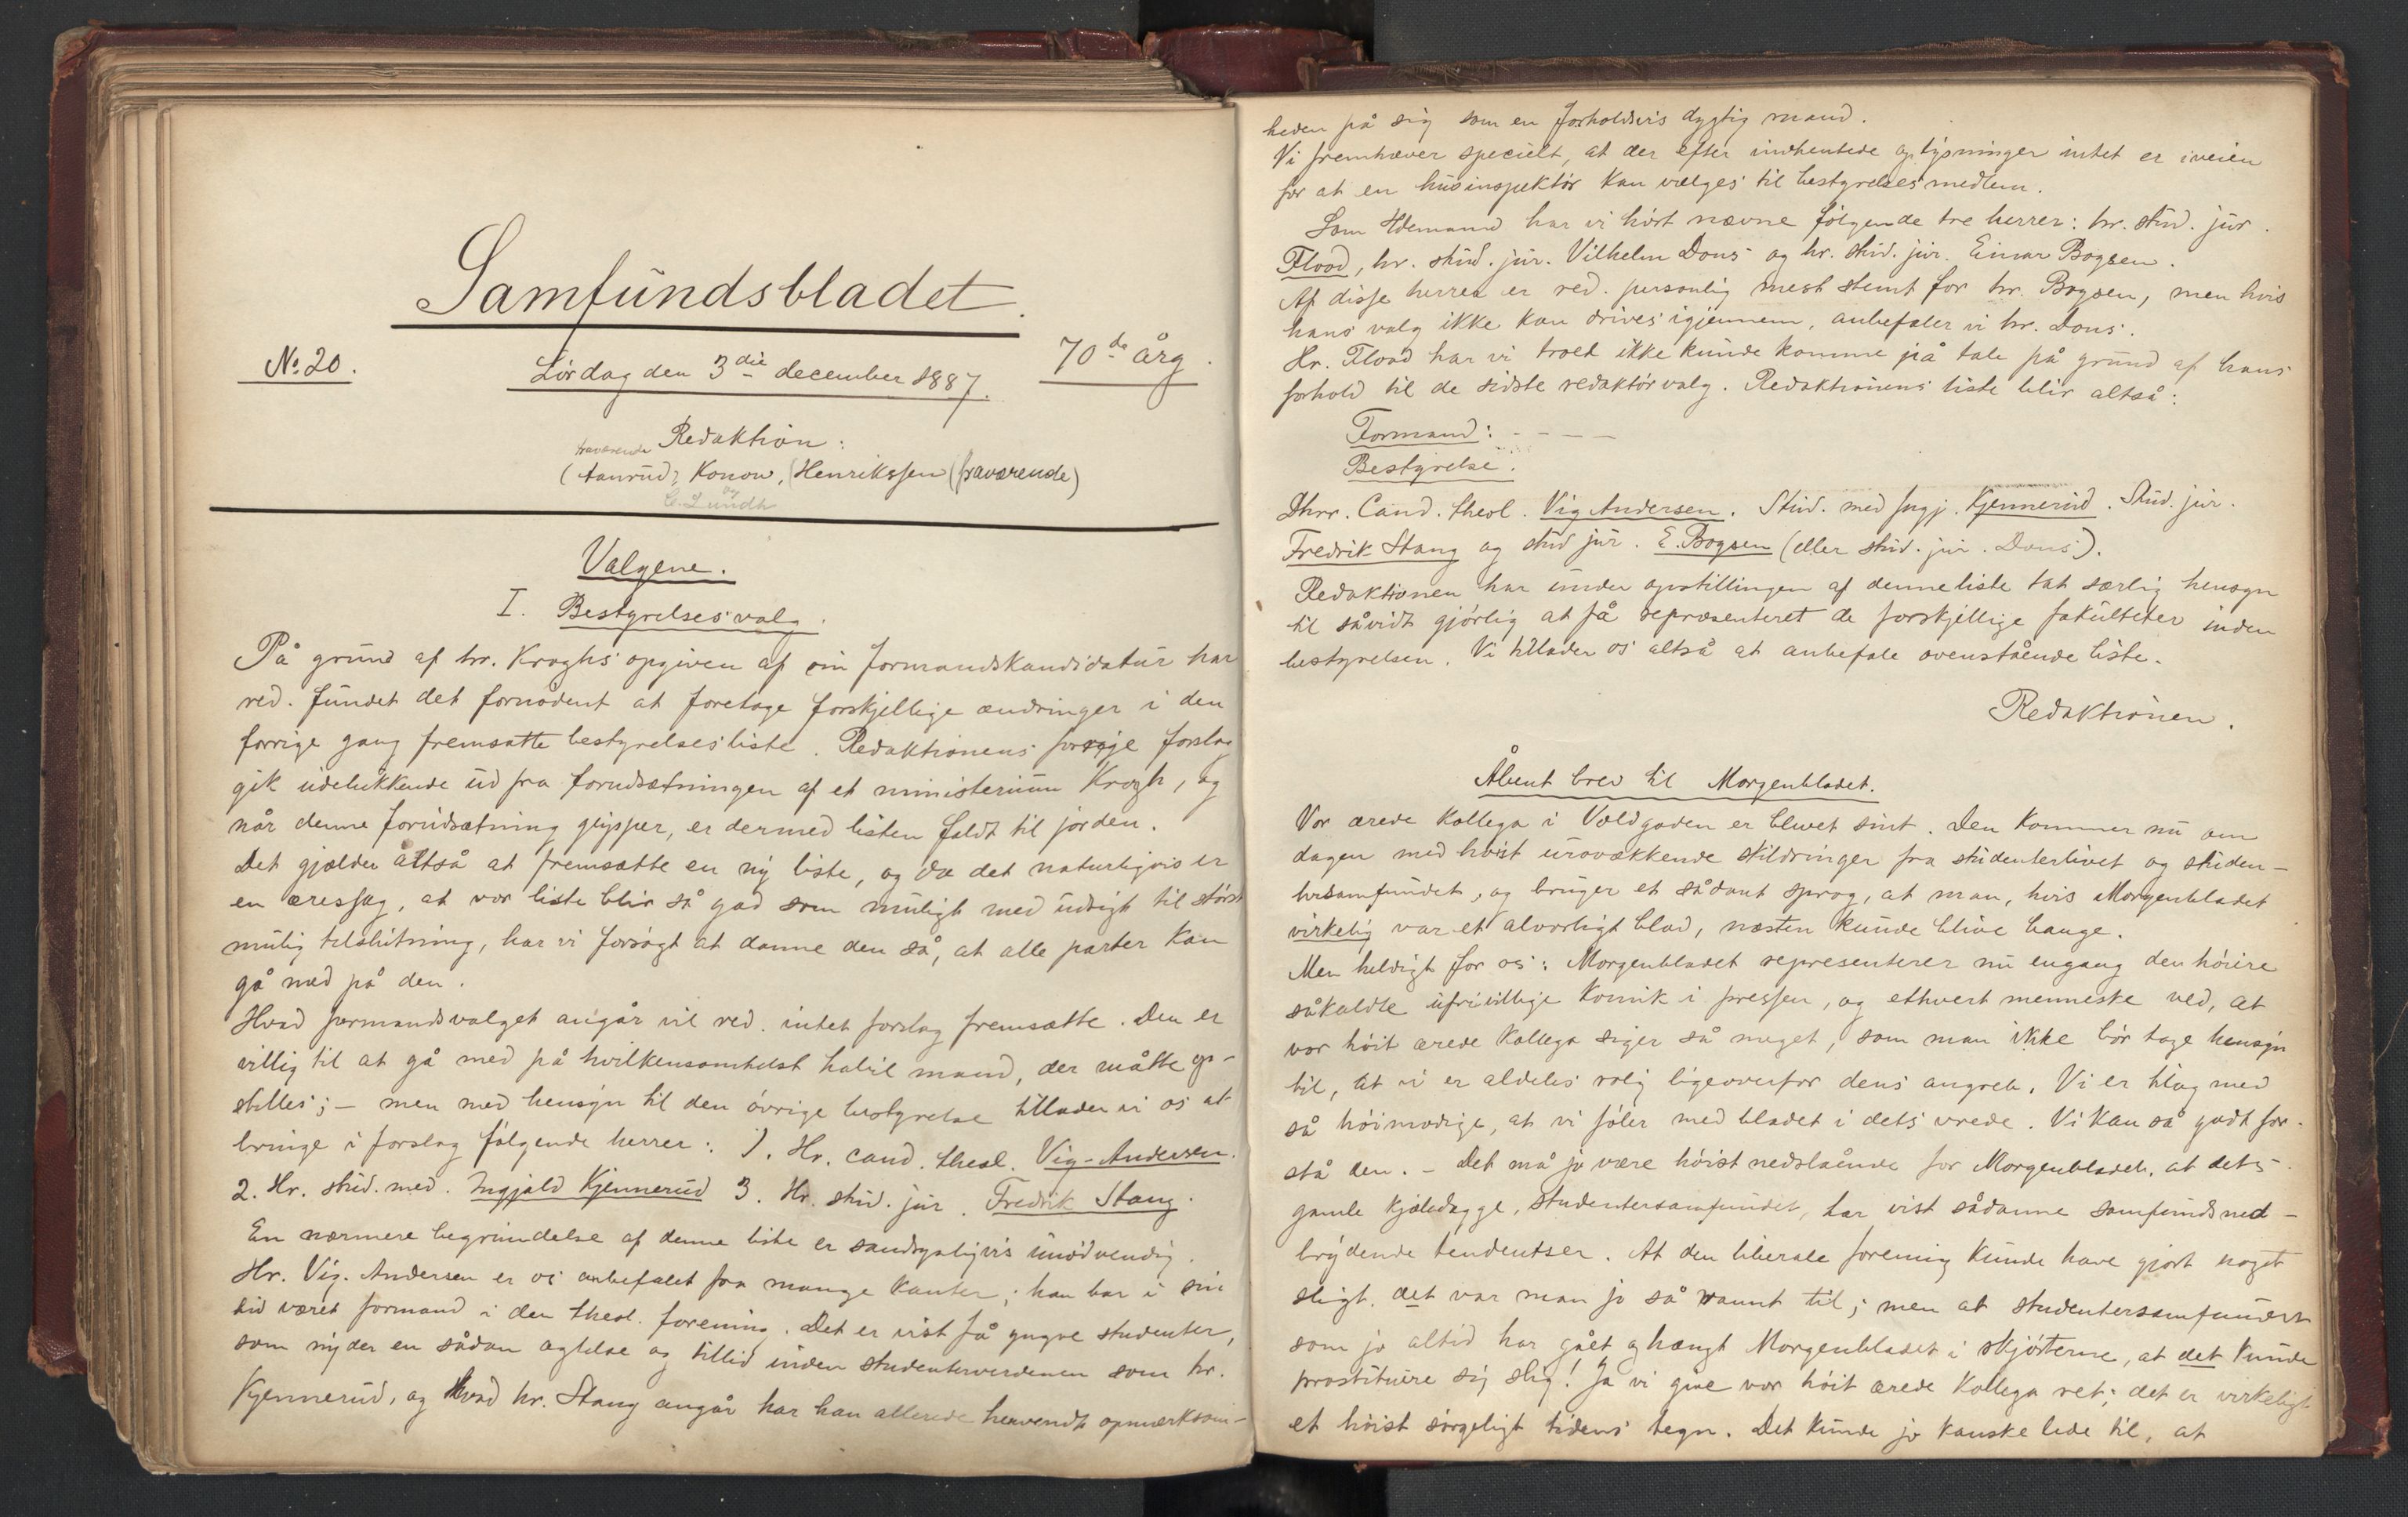 Samfundsbladet.
No. 20.
Lördag den 3die december 1887.
70de årg.
fraværende Redaktion:
(Aanrud, Konow, (Henrikssen (fraværende)
og
C. Lundh
Valgene.
I. Bestyrelsesvalg.
På grund af hr. Kroghs opgiven af sin formandskandidatur har
red. fundet det fornødent at foretage forskjellige ændringer i den
forrige gang fremsatte bestyrelsesliste. Redaktionens forrige forslag
gik udelukkende ud fra forudsætningen af et ministerium Krogh, og
når denne forudsætning glipper, er dermed listen faldt til jorden.
Det gjælder altså at fremsætte en ny liste, og da det naturligvis er
en æressag, at vor liste blir så god som muligt med udsigt til störst
mulig tilslutning, har vi forsøgt at danne den så, at alle parter kan
gå med på den.
Hvad formandsvalget angår vil red. intet forslag fremsætte. Den er
villig til at gå med på hvilkensomhelst habil mand, der måtte op-
stilles; – men med hensyn til den övrige bestyrelse tillader vi os at
bringe i forslag følgende herrer: 1. Hr. cand. theol. Vig-Andersen.
2. Hr. stud. med. Ingjald Kjennerud 3. Hr. stud. jur. Fredrik Stang.
En nærmere begrundelse af denne liste er sandsynligvis unödvendig.
Hr. Vig. Andersen er os anbefalet fra mange kanter; han har i sin
tid været formand i den theol. forening. Det er vist få yngre studenter,
som nyder en sådan agtelse og tillid inden studenterverdenen som hr.
Kjennerud, og hvad hr. Stang angår har han allerede henvendt opmærksom-
heden på sig som en forholdsvis dygtig mand.
Vi fremhæver specielt, at der efter indhentede oplysninger intet er iveien
for at en husinspektör kan vælges til bestyrelsesmedlem.
Som 4demand har vi hört nævne fölgende tre herrer: hr. stud. jur.
Flood, hr. stud. jur. Vilhelm Dons og hr. stud. jur. Einar Bogsen.
Af disse herrer er red. personlig mest stemt for hr. Bogsen, men hvis
hans valg ikke kan drives igjennem, anbefaler vi hr. Dons.
Hr. Flood har vi troet ikke kunde komme på tale på grund af hans
forhold til de sidste redaktörvalg. Redaktionens liste blir altså:
Formand: – – – –
Bestyrelse:
Dhrr. Cand. theol. Vig Andersen. Stud. med Ingj. Kjennerud. Stud. jur.
Fredrik Stang og stud jur. E. Bogsen (eller stud. jur. Dons).
Redaktionen har under opstillingen af denne liste tat særlig hensyn
til såvidt gjörlig at få repræsenteret de forskjellige fakulteter inden
bestyrelsen. Vi tillader os altså at anbefale ovenstående liste.
Redaktionen.
Åbent brev til Morgenbladet.
Vor ærede kollega i Voldgaden er blevet sint. Den kommer nu om
dagen med höist urovækkende skildringer fra studenterlivet og studen-
tersamfundet, og bruger et sådant sprog, at man, hvis Morgenbladet
virkelig var et alvorligt blad, næsten kunde blive bange.
Men heldigt for os: Morgenbladet representerer nu engang den höiere
såkaldte ufrivillige komik i pressen, og ethvert menneske ved, at
vor höit ærede kollega siger så meget, som man ikke bör tage hensyn
til, at vi er aldeles rolig ligeoverfor dens angreb. Vi er tilog med
så höimodige, at vi föler med bladet i dets vrede. Vi kan så godt for-
stå den. – Det må jo være höist nedslående for Morgenbladet, at dets
gamle kjæledægge, studentersamfundet, har vist sådanne samfundsned-
brydende tendentser. At den liberale forening kunde have gjort noget
sligt, det var man jo så vannt til; men at studentersamfundet
som jo altid har gået og hængt Morgenbladet i skjörterne, at det kunde
prostituere sig slig! Ja vi give vor höit ærede kollega ret; det er virkeligt
et höist sörgeligt tidens tegn. Det kunde jo kanske lede til, at